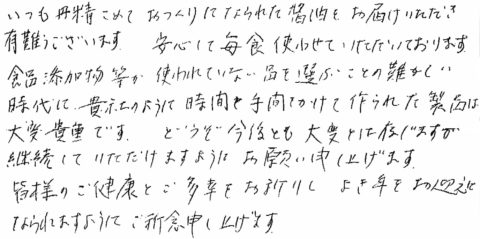 いつも丹精こめて おつくりになられた醤油を お届けいただき
有難うございます 安心して毎食使わせていただいております
食品添加物等が 使われていない品を選ぶことの難かしい
時代に 貴社のように 時間と手間をかけて作られた製品は
大変貴重です どうぞ今後とも 大変とは存じますが
継続していただけますように お願い申し上げます
皆様のご健康とご多幸をお祈りし よき年をお迎えに
なられますように ご祈念申し上げます